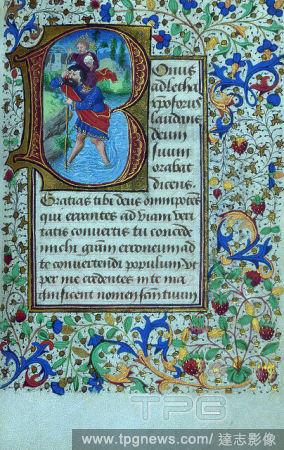 Bonus
adletha
xpoforus
laudans
deum
suum
orabat
dicens
Gratias tibi deus omnipotēs
qui errantes ad viam veri
tatis convertis tu concede
michi quam erroneum ad
te convertendi populum vt
per me credentes in te ma
gnificent nomen tuum
TPG
www.tpgnews.com/ 達志影像